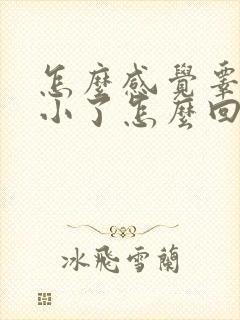 怎麼感覺睾
小了怎麼回
冰飛雪蘭